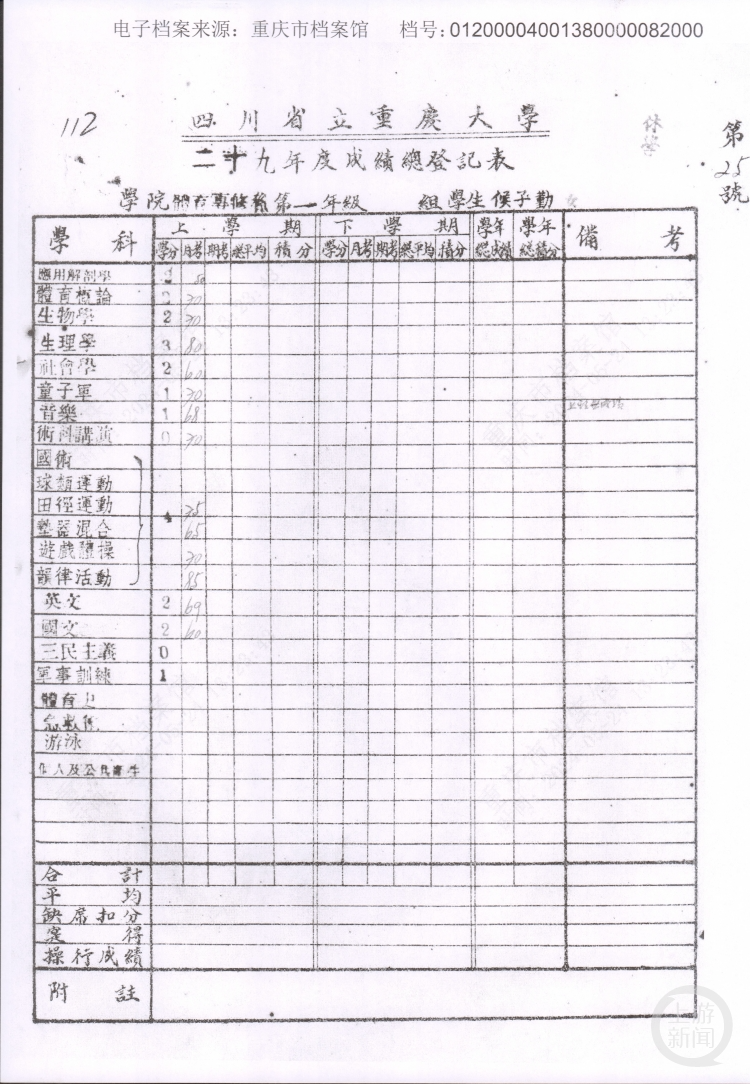 电子档案来源：重庆市档案馆 档号：01200004001380000082000
112
四川省立重慶大學
休學
第25號
二十九年度成績總登記表
學院體育專修科第一年級 組學生候子勤 女
學科 上學期 下學期 學年總成績 學年總積分 備考
學分 月考 期考 總平均 積分 學分 月考 期考 總平均 積分
應用解剖學
體育概論 70
生物學 2 70
生理學 3 80
社會學 2 60
童子軍 1 70
音樂 1 68
術科講演 0 70
國術
球類運動
田徑運動 4 75
墊器混合 65
遊戲體操 70
韻律活動 85
英文 2 69
國文 2 60
三民主義 0
軍事訓練 1
體育史
急救術
游泳
個人及公共衛生
合計
平均
缺席扣分
實得
操行成績
附註
上游新闻